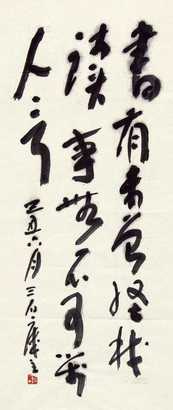 書有未曾經我
讀事無不可對
人言
丑六月三石